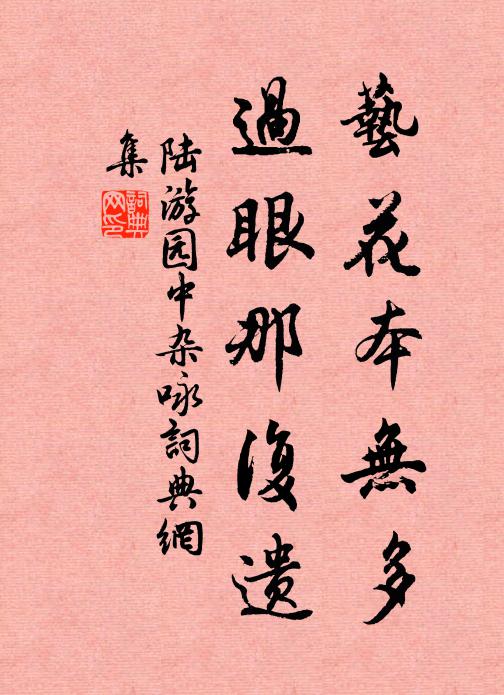 藝花本無多
過眼那復遗
陆游园中杂咏詞典網
集
詞典網印